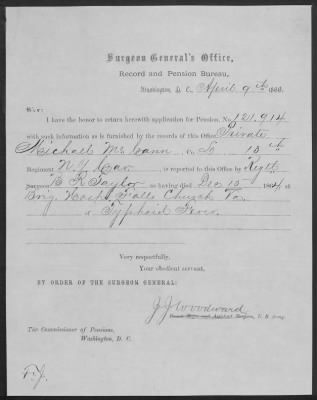 Surgeon General's Office,
Record and Pension Bureau,
Washington, D. C. April 9th 1866.
Sir:
I have the honor to return herewith application for Pension, No. 121.914
with such information as is furnished by the records of this Office Private
Michael McCann Co 13th
Regiment N.Y. Cav is reported to this Office by Regtl
Surgeon B R Taylor as having died Dec 15 1864 at
Brig Hosptl Falls Church Va
of Typhoid Fever
Very respectfully,
Your obedient servant,
BY ORDER OF THE SURGEON GENERAL:
J. J. Woodward
Assistant Surgeon, U. S. Army.
The Commissioner of Pensions,
Washington, D. C.